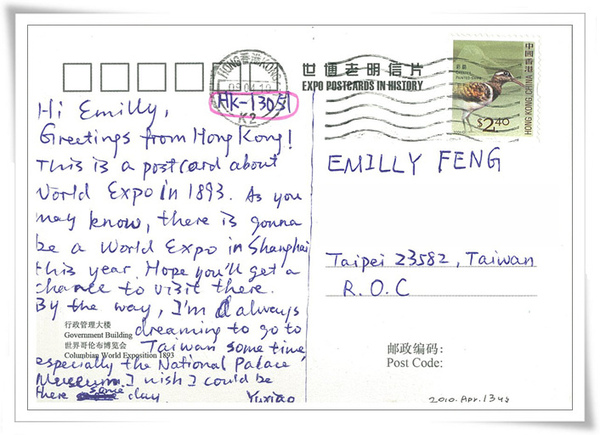 HONG KONG 香港
09.04.10
K2
HK-13051
世博老明信片
EXPO POSTCARDS IN HISTORY
彩鷸
Greater
Painted-snipe
中國香港 HONG KONG, CHINA
$2.40
Hi Emilly,
Greetings from Hong Kong!
This is a postcard about
World Expo in 1893. As you
may know, there is gonna
be a World Expo in Shanghai
this year. Hope you'll get a
chance to visit there.
By the way, I'm always
dreaming to go to
Taiwan some time,
especially the National Palace
Museum. I wish I could be
there some day.
Yuxiao
行政管理大楼
Government Building
世界哥伦布博览会
Columbian World Exposition 1893
EMILLY FENG
Taipei 23582, Taiwan
R.O.C
邮政编码:
Post Code: